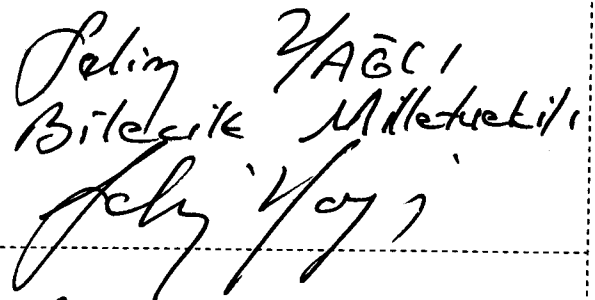 Selim YAĞCI
Bilecik Milletvekili